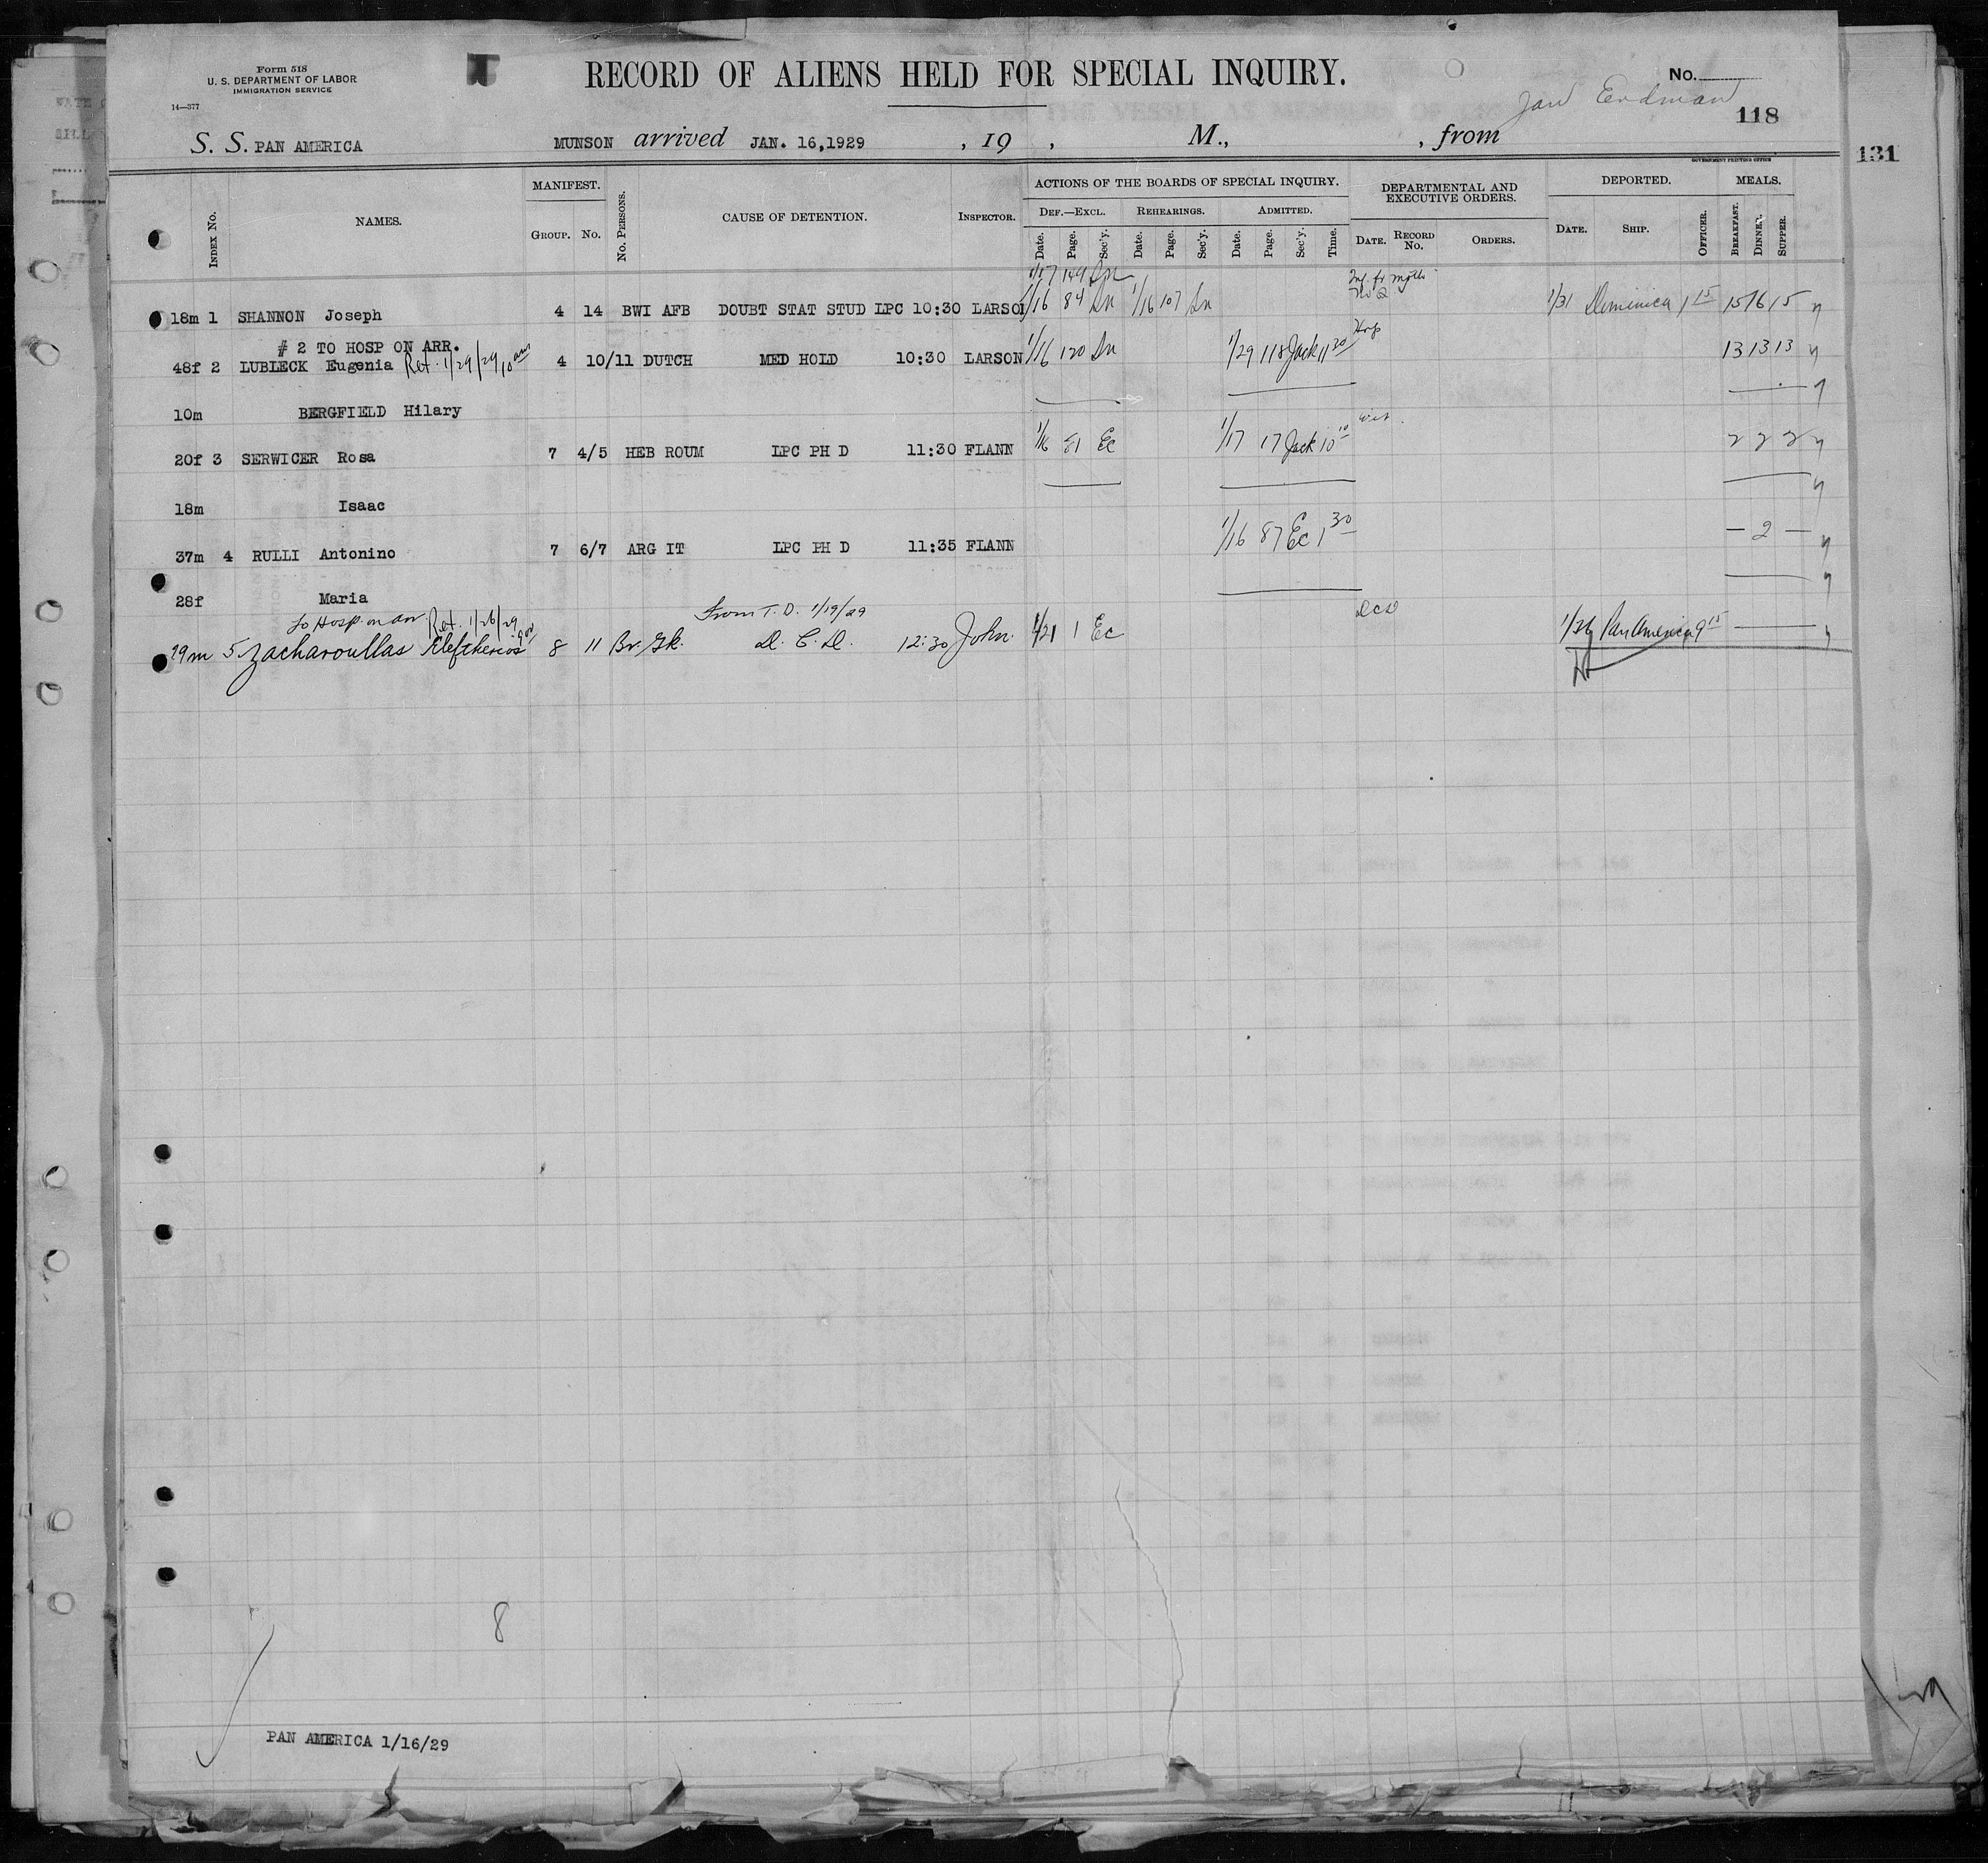 Form 518
U. S. DEPARTMENT OF LABOR
IMMIGRATION SERVICE
14—377
RECORD OF ALIENS HELD FOR SPECIAL INQUIRY.
No.
118
131
S. S. PAN AMERICA MUNSON arrived JAN. 16,1929 , 19 , M., , from
GOVERNMENT PRINTING OFFICE
INDEX NO. NAMES. MANIFEST. GROUP. NO. NO. PERSONS. CAUSE OF DETENTION. INSPECTOR. ACTIONS OF THE BOARDS OF SPECIAL INQUIRY. DEPARTMENTAL AND EXECUTIVE ORDERS. DEPORTED. MEALS.
DEF.—EXCL. REHEARINGS. ADMITTED.
Date. Page. Sec'y. Date. Page. Sec'y. Date. Page. Sec'y. Time. DATE. RECORD NO. ORDERS. DATE. SHIP. OFFICER. BREAKFAST. DINNER. SUPPER.
1/17 149
18m 1 SHANNON Joseph 4 14 BWI AFB DOUBT STAT STUD LPC 10:30 LARSON 1/16 84 1/16 107 1/31 Dominica 1 15 15 16 15
# 2 TO HOSP ON ARR.
48f 2 LUBLECK Eugenia Ret. 1/29/29 10 am 4 10/11 DUTCH MED HOLD 10:30 LARSON 1/16 120 1/29 118 Jack 11 30 Hosp 13 13 13
10m BERGFIELD Hilary
20f 3 SERWICER Rosa 7 4/5 HEB ROUM LPC PH D 11:30 FLANN 1/16 81 Ec 1/17 17 Jack 10 10 2 2 2
18m Isaac
37m 4 RULLI Antonino 7 6/7 ARG IT LPC PH D 11:35 FLANN 1/16 87 Ec 1 30 — 2 —
28f Maria
To Hosp. on arr Ret. 1/26/29 From T. D. 1/19/29
19m 5 Zacharoullas Eleftherios 8 11 Br. Gk. D. C. D. 12:30 John. 1/21 1 Ec DCD 1/26 Pan America 9 15
8
PAN AMERICA 1/16/29